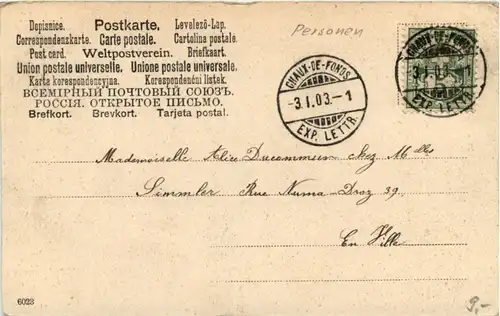 Dopisnice. Postkarte. Levelező-Lap.
Correspondenzkarte. Carte postale. Cartolina postale.
Post card. Weltpostverein. Briefkaart.
Union postale universelle. Unione postale universale.
Karta korespondencyjna. Korespondenční listek.
ВСЕМІРНЫЙ ПОЧТОВЫЙ СОЮЗЪ.
РОССІЯ. ОТКРЫТОЕ ПИСЬМО.
Brefkort. Brevkort. Tarjeta postal.
Personen
CHAUX-DE-FONDS
-3 I.03.-1
EXP. LETTR.
CHAUX-DE-FONDS
EXP. LETTR.
Mademoiselle Alice Ducommun chez Mlles
Simmler Rue Numa-Droz 39.
En Ville
6023
9,-